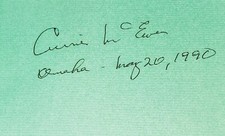 Currie McEwen
Omaha - May 20, 1990